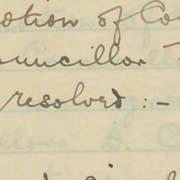 otion of Co
ouncillor
resolved : -